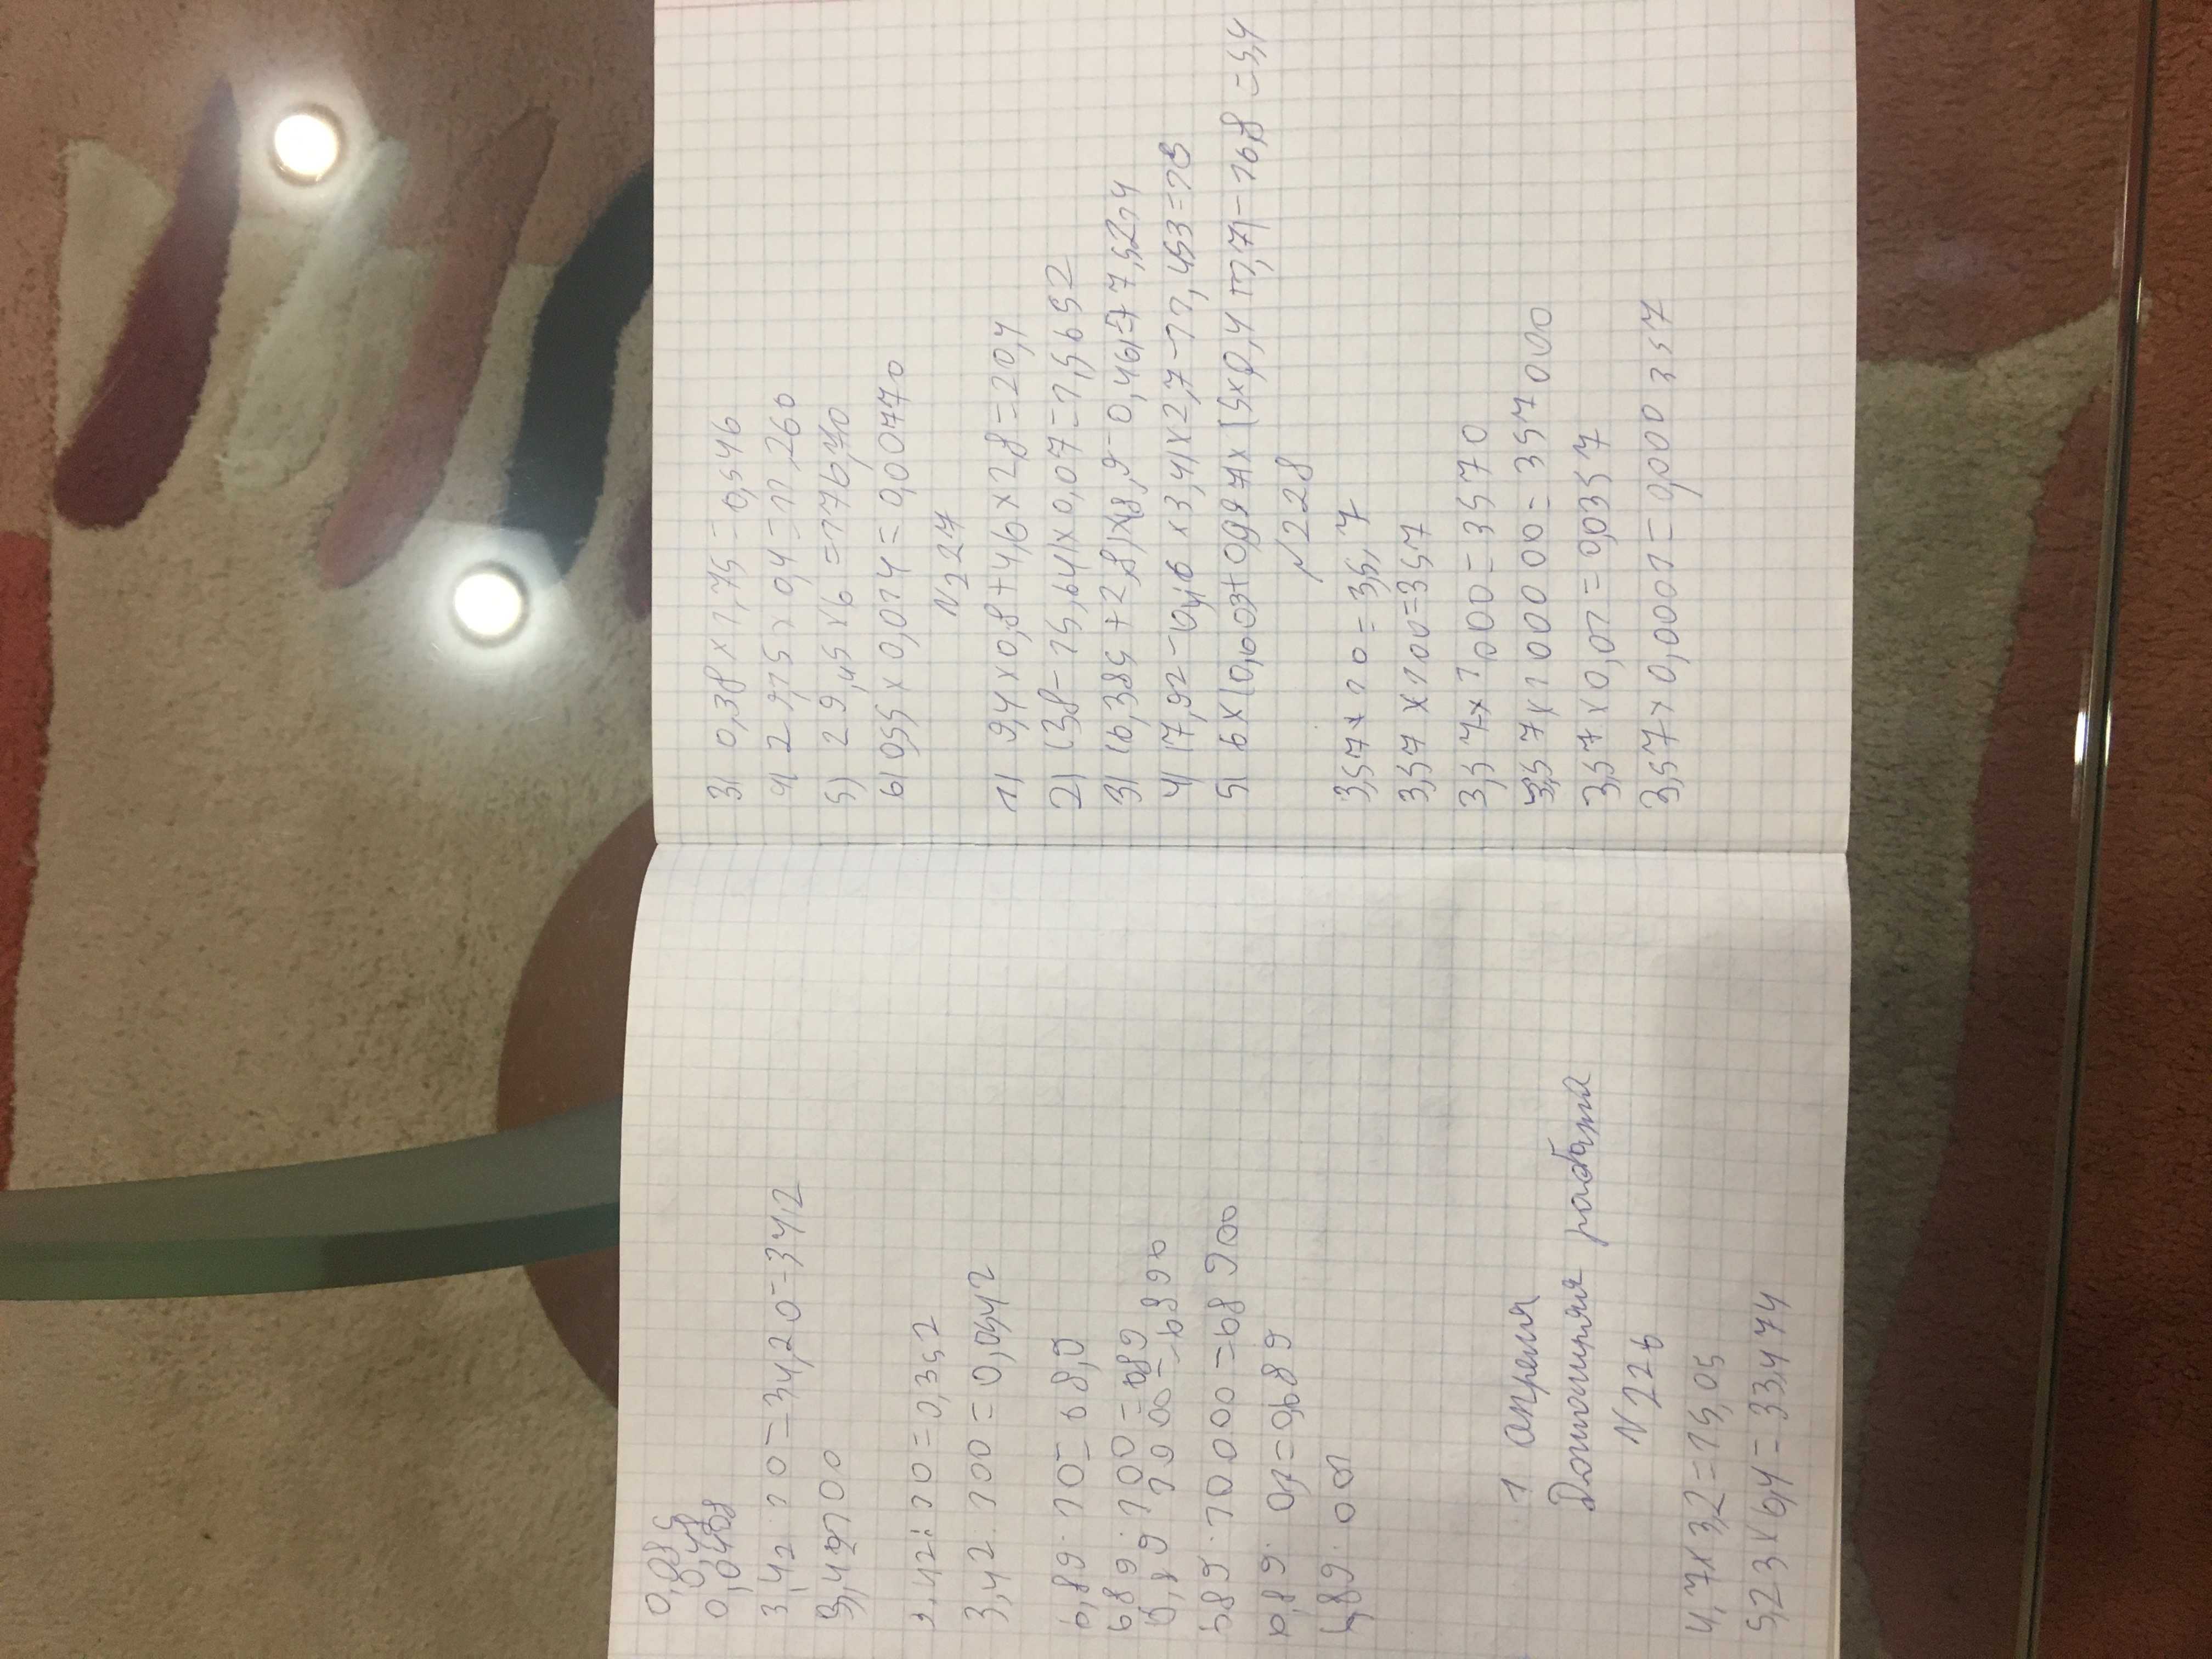 0,085
0,48
0,0408
3,42·10=34,20=34,2
3,42·100
3,42:10=0,352
3,42:100=0,0342
6,89·10=68,9
689·100=689
6,89·1000=6890
689·10000=68900
6,89·0,1=0,689
6,89·001
1 апреля
Домашняя работа
N226
4,7x3,2=15,05
5,23x6,4=33,474
3) 0,38x1,75=0,546
4) 2 9,15x0,4=11,260
5) 29,45x6=176,70
6) 0,55x0,014=0,00770
N227
1) 9,4x0,8+4,6x2,8=20,4
2) (38-15,64)x0,07=1,5652
3) (6,385+2,8)x(8,9-0,46)=77,5214
4) (7,92-0,46x3,4)x2,7-11,453=10
5) 6x(0,603+0,997)x(5x0,4+1,7)-16,8=5,4
N228
3,57x10=35,7
3,57x100=357
3,57x1000=3570
3,57x100000=357000
3,57x0,01=0,0357
3,57x0,0001=0,000357